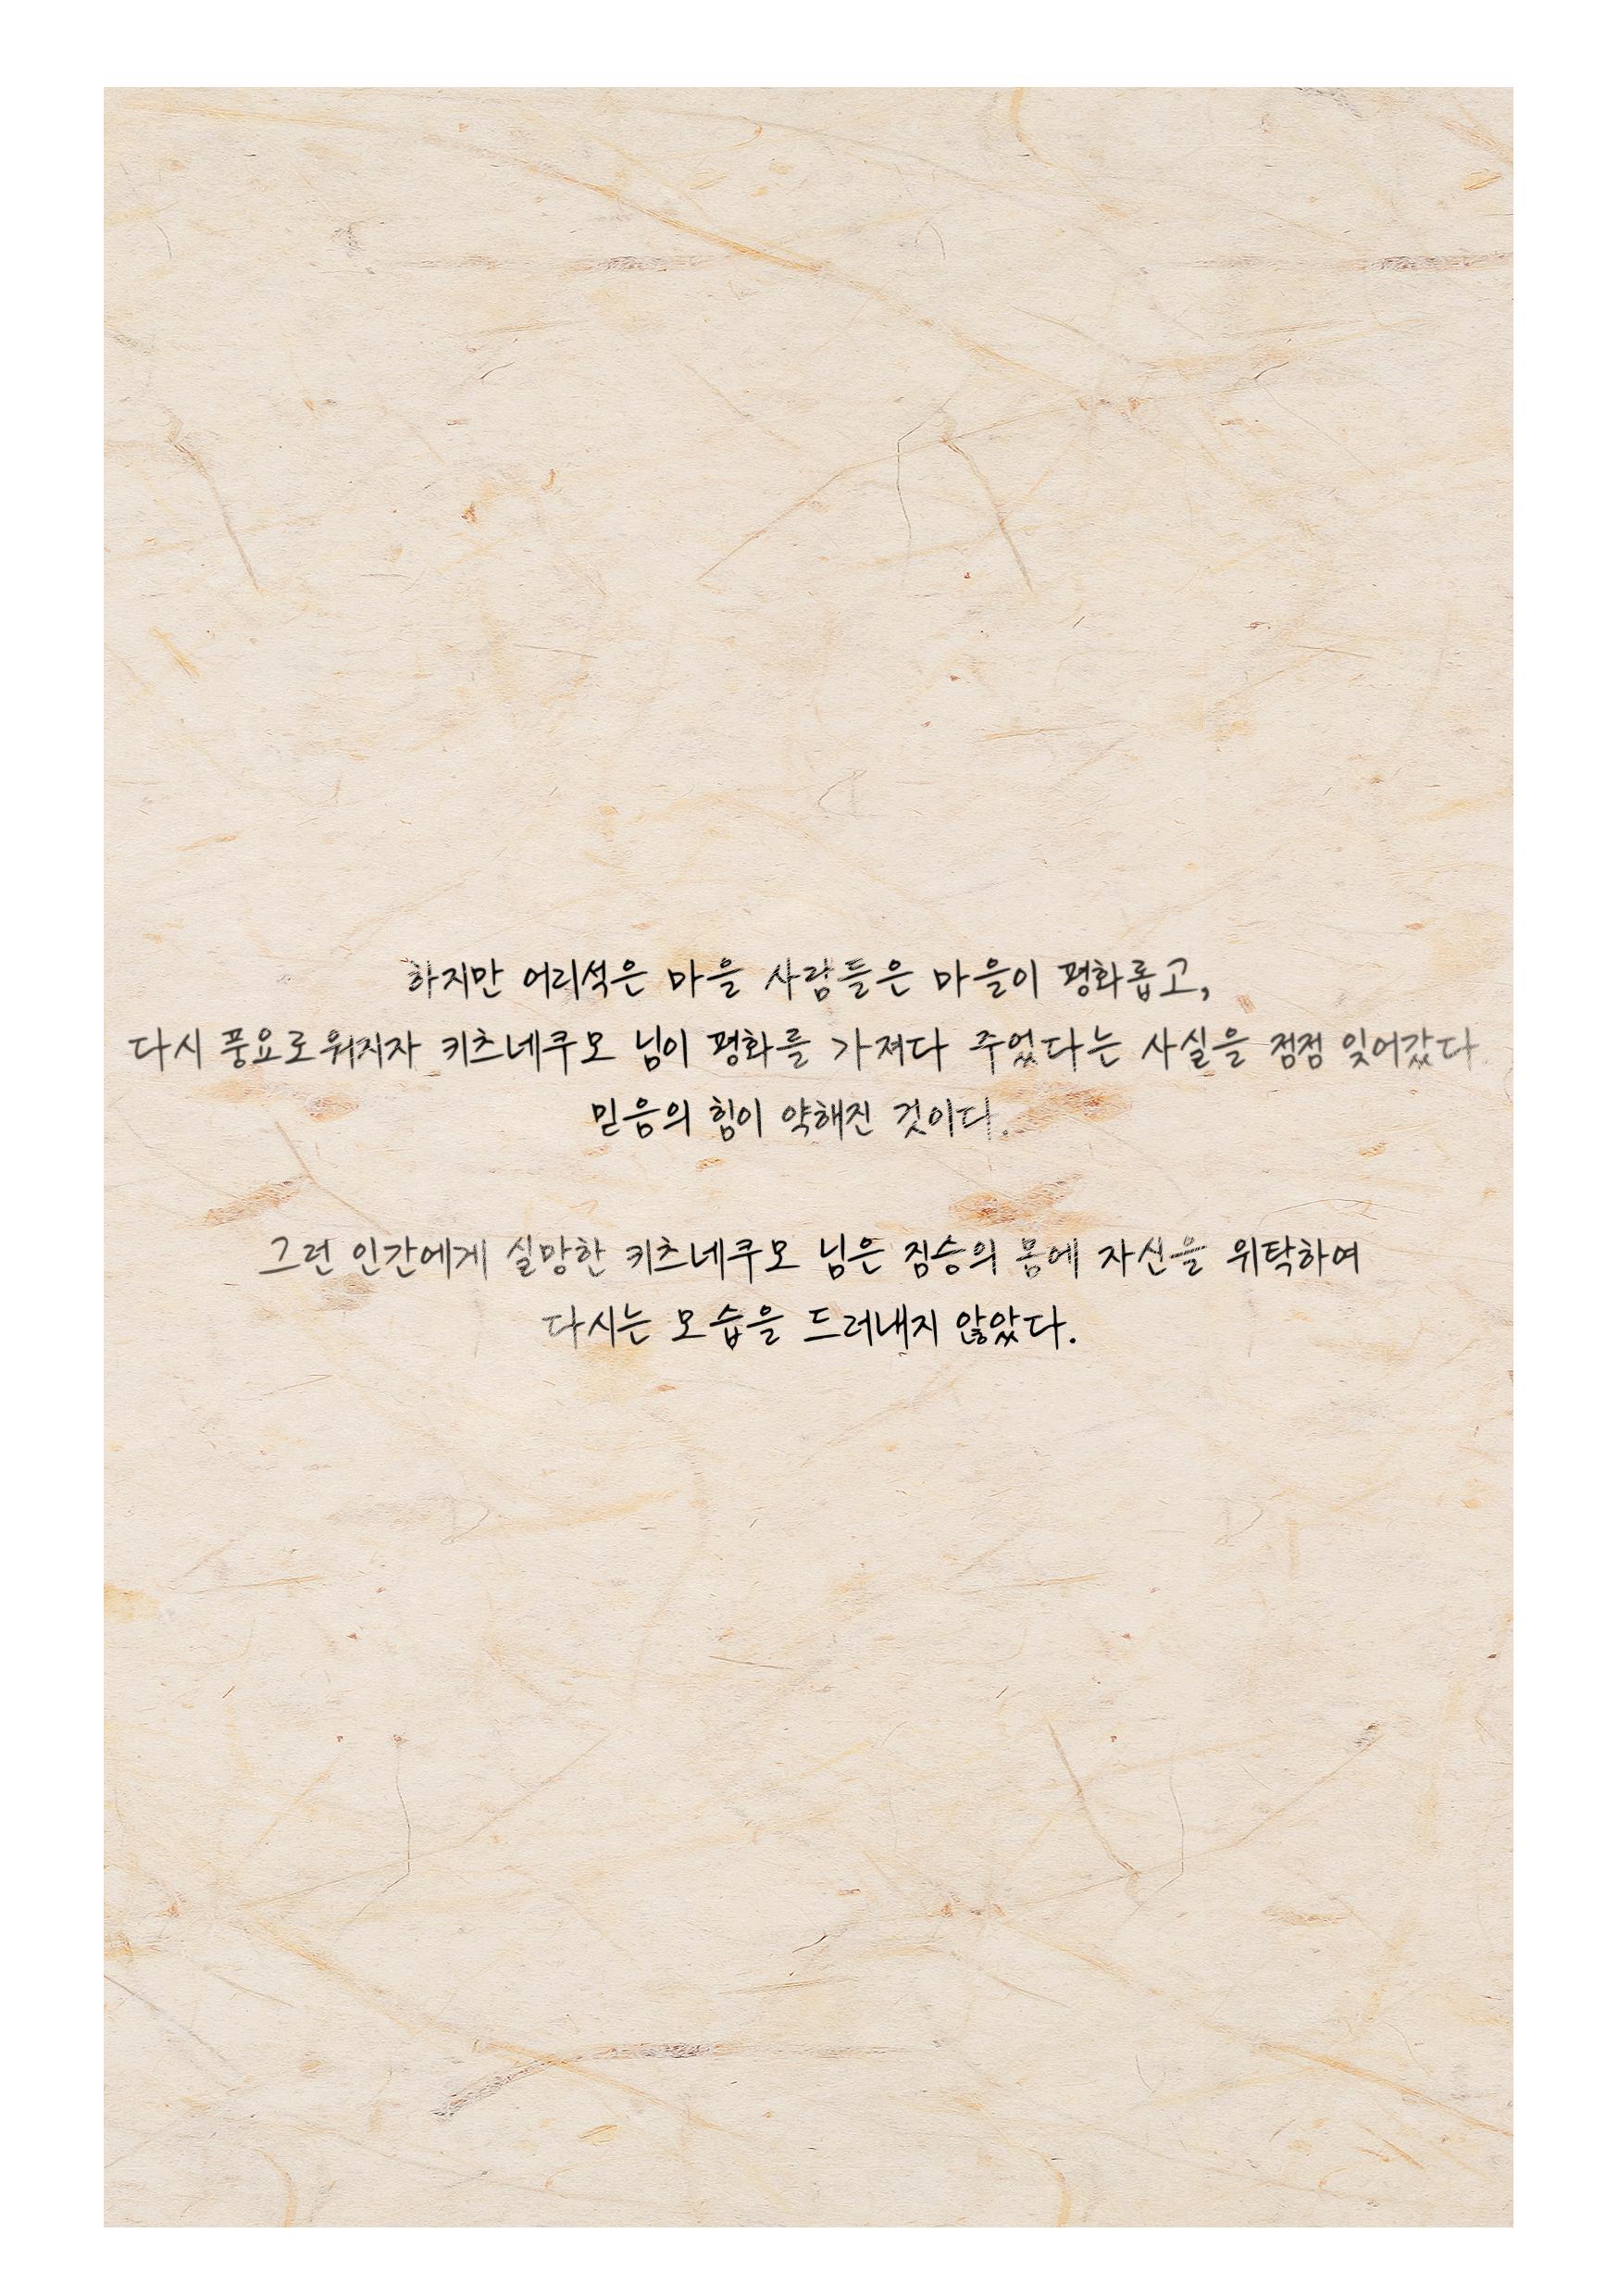 하지만 어리석은 마을 사람들은 마을이 평화롭고,
다시 풍요로워지자 키츠네쿠모 님이 평화를 가져다 주었다는 사실을 점점 잊어갔다.
믿음의 힘이 약해진 것이다.
그런 인간에게 실망한 키츠네쿠모 님은 짐승의 몸에 자신을 위탁하여
다시는 모습을 드러내지 않았다.